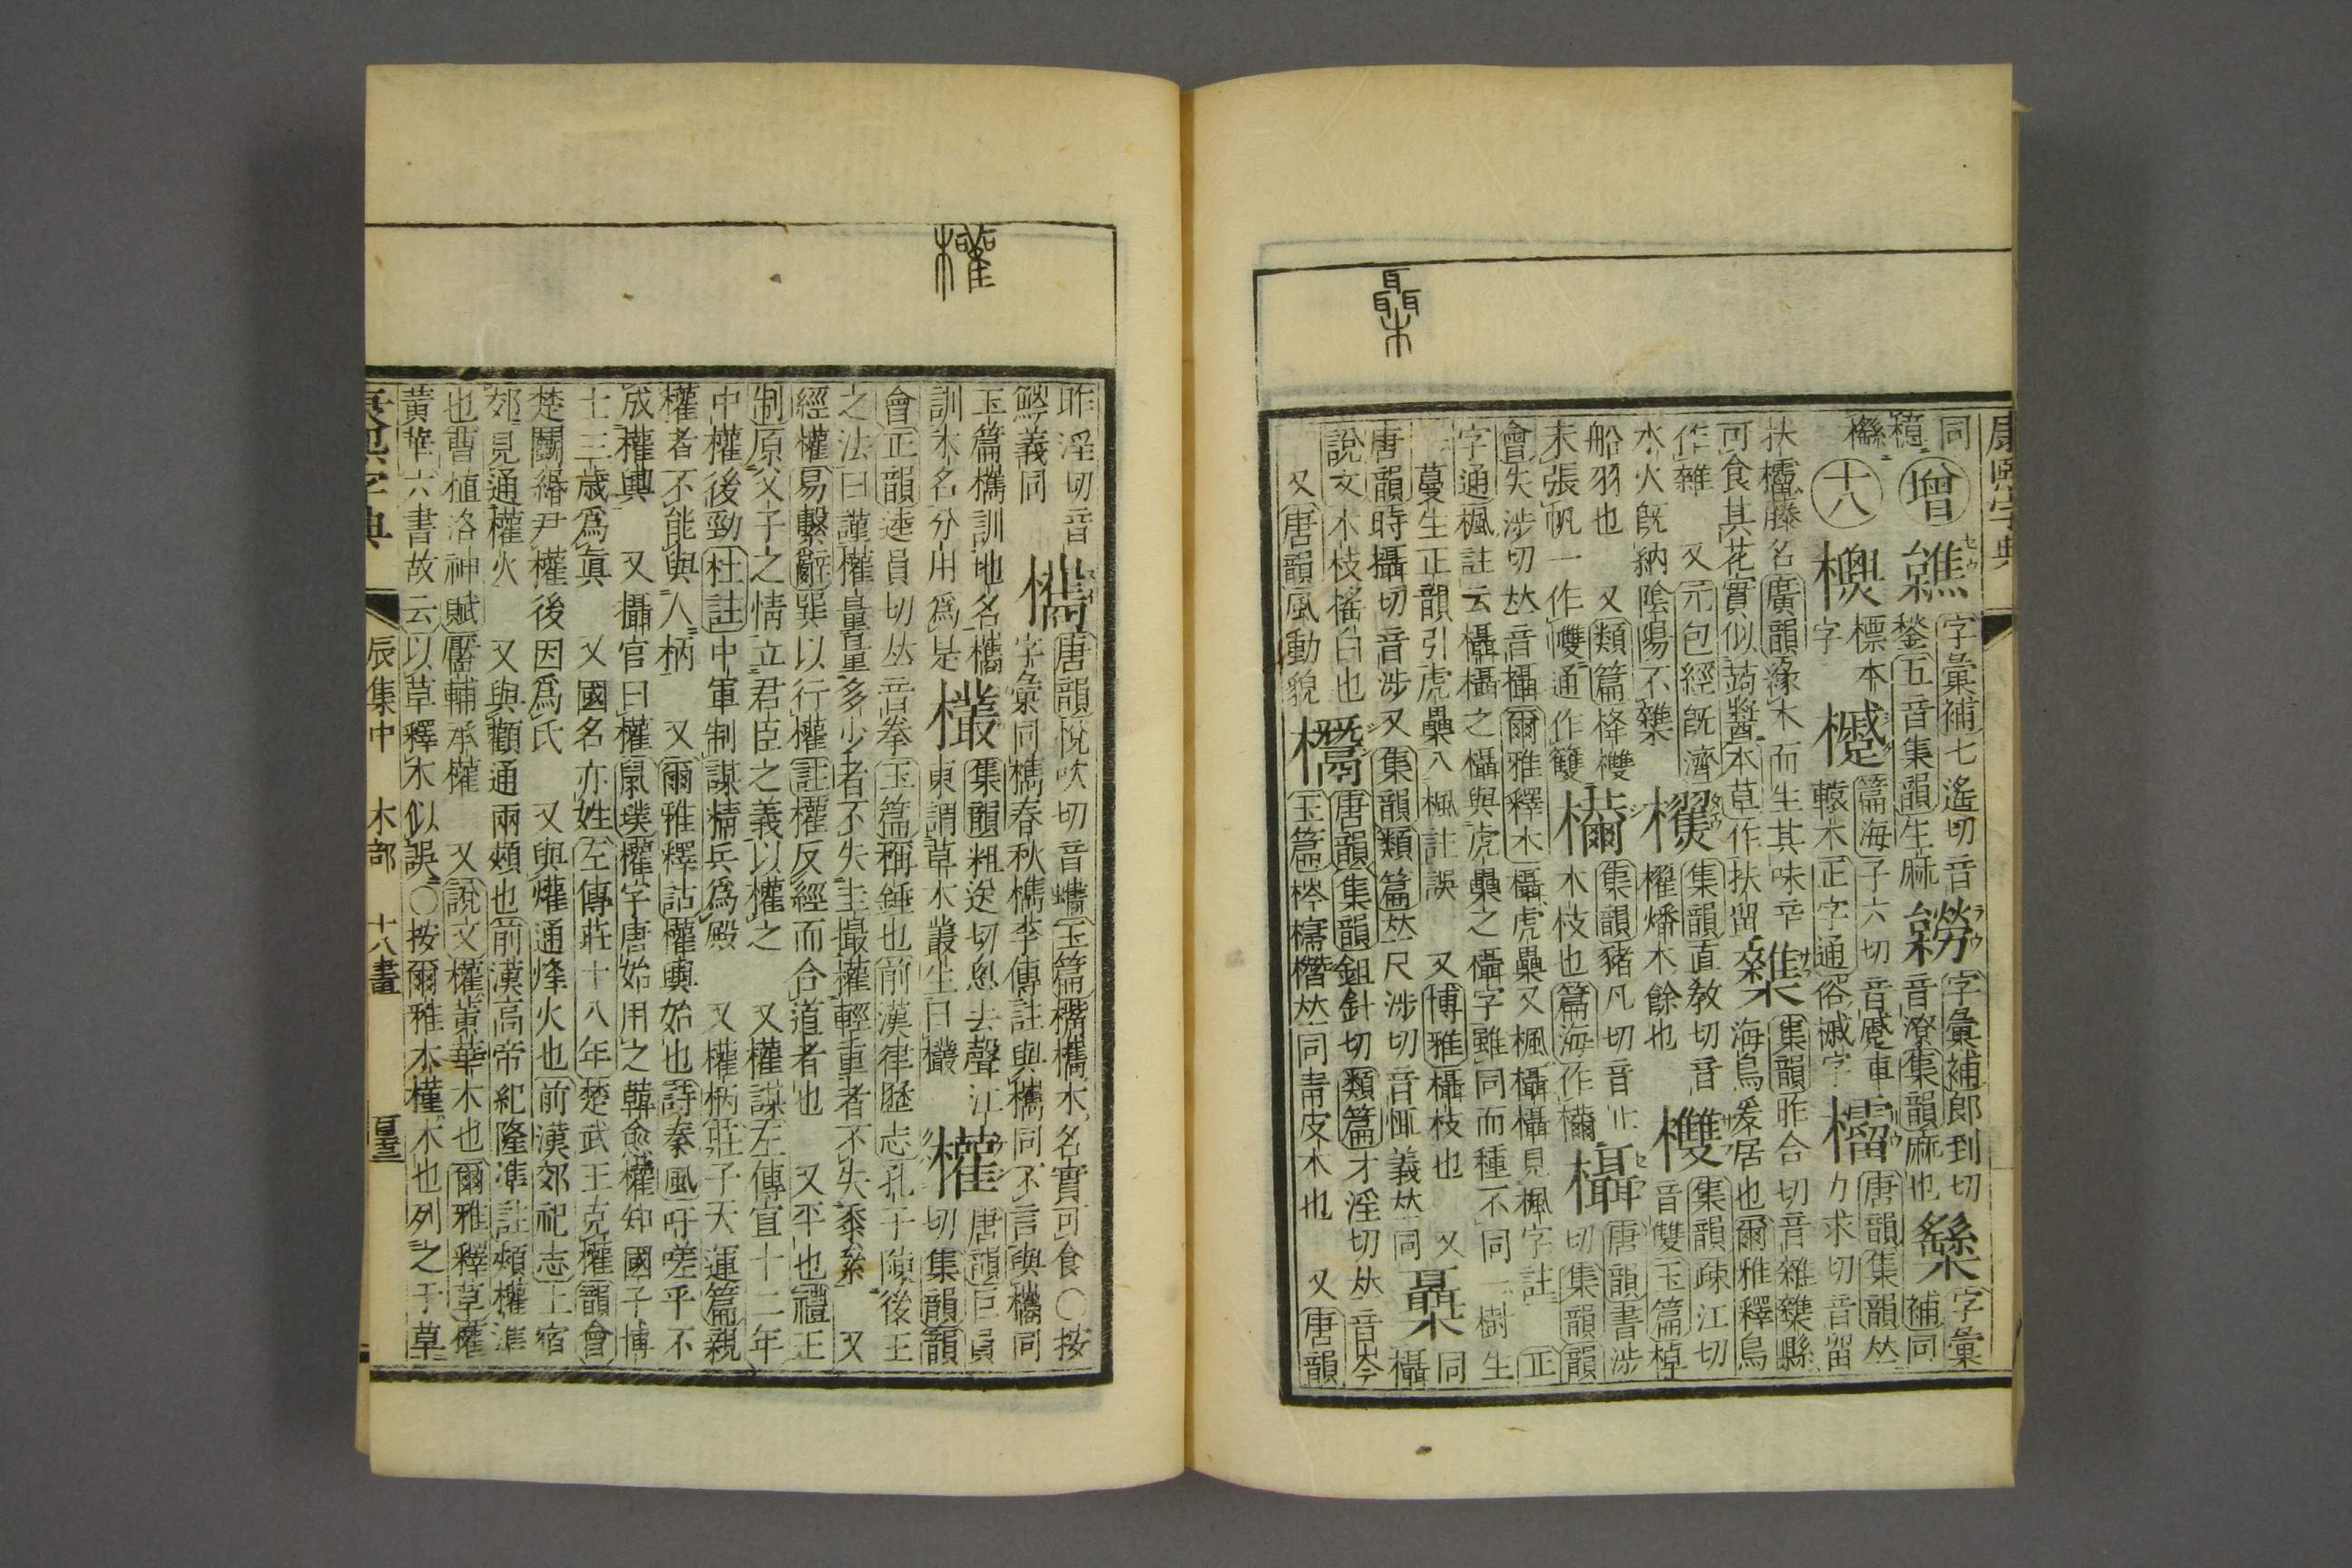 康熙字典
欇
同
增
字彙補七遙切音
鍫五音集韻生麻
字彙補郎到切
音潦集韻麻也
字彙
補同
十八
標本
字
篇海子六切音蹙車
轅木正字通俗槭字
橊 唐韻集韻𠀤
力求切音留
扶橊藤名廣韻緣木而生其味辛
可食其花實似蒟醬本草作扶留
集韻昨合切音雜
海鳥爰居也爾雅釋鳥
作雜 又元包經旣濟
水火旣納陰陽不
櫂 集韻直敎切音
櫂燔木餘也
欆 集韻疎江切
音雙玉篇棹
船羽也 又類篇桻欆
未張帆一作㡠通作䉶
集韻豬凡切音
木枝也篇海作
欇 唐韻書涉
切集韻韻
會失涉切𠀤音攝爾雅釋木欇虎櫐又楓欇欇見楓字註 正
字通楓註云欇欇之欇與虎櫐之欇字雖同而種不同一樹生
蔓生正韻引虎櫐入楓註誤 又博雅欇枝也 又 同欇
唐韻時攝切音涉又集韻類篇𠀤尺涉切音㤴義𠀤同
說文木枝搖白也
又唐韻風動貌
唐韻集韻鉏針切類篇才淫切𠀤音岑
玉篇梣 櫹𠀤同靑皮木也 又唐韻
權
昨淫切音
義同
欈 唐韻悅吹切音蠵玉篇欈木名實可食〇按
字彙同檇春秋檇李傳註與欈同不言與欈同
玉篇欈訓地名檇
訓木名分用爲是
欉 集韻粗送切悤去聲江
東謂草木叢生曰欉
權 唐韻巨員
切集韻韻
會正韻逵員切𠀤音拳玉篇稱錘也前漢律歷志孔子陳後王
之法曰謹權量量多少者不失圭撮權輕重者不失黍絫 又
經權易繫辭巽以行權註權反經而合道者也 又平也禮王
制原父子之情立君臣之義以權之 又權謀左傳宣十二年
中權後勁杜註中軍制謀精兵爲殿 又權柄莊子天運篇親
權者不能與人柄 又爾雅釋詁權輿始也詩秦風吁嗟乎不
成權輿 又攝官曰權鼠璞權字唐始用之韓愈權知國子博
士三歲爲眞 又國名亦姓左傳莊十八年楚武王克權韻會
楚鬭緡尹權後因爲氏 又與爟通烽火也前漢郊祀志上宿
郊見通權火 又與顴通兩頰也前漢高帝紀隆準註頰權準
也曹植洛神賦靨輔承權 又說文權黃華木也爾雅釋草權
黃華六書故云以草釋木似誤〇按爾雅木權木也列之于草
康熙字典
辰集中 木部 十八畫